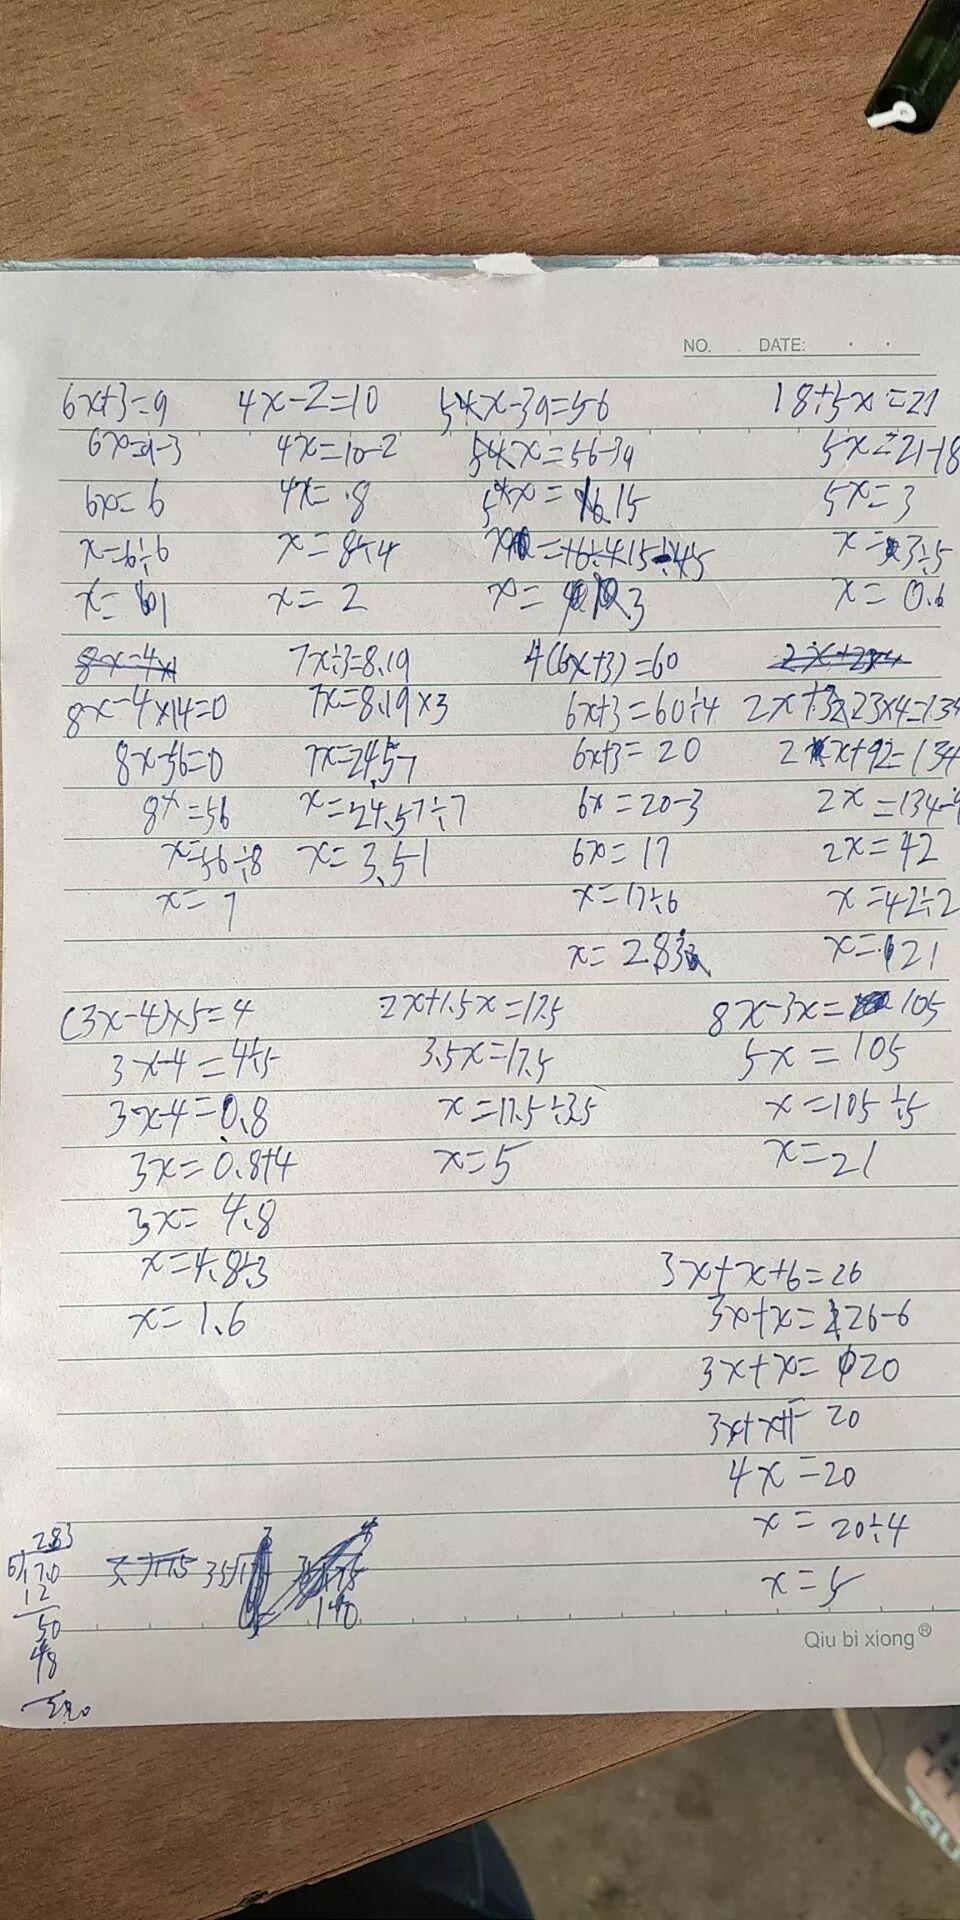 NO. DATE:
6x+3=9 4x-2=10 54x-39=56 18+5x=21
6x=9-3 4x=10-2 54x=56-39 5x=21-18
6x=6 4x=8 5x=15 5x=3
x=6÷6 x=8÷4 x=3÷5
x=1 x=2 x=3 x=0.6
8x-4x 7x÷3=8.19 4(6x+3)=60
8x-4×14=0 7x=8.19×3 6x+3=60÷4 2x+23×4=134
8x-56=0 7x=24.57 6x+3=20 2x+92=134
8x=56 x=24.57÷7 6x=20-3 2x=134-9
x=56÷8 x=3.51 6x=17 2x=42
x=7 x=17÷6 x=42÷2
x=2.83 x=21
(3x-4)×5=4 2x+1.5x=17.5 8x-3x=105
3x-4=4÷5 3.5x=17.5 5x=105
3x-4=0.8 x=17.5÷3.5 x=105÷5
3x=0.8+4 x=5 x=21
3x=4.8
x=4.8÷3 3x+x+6=26
x=1.6 3x+x=26-6
3x+x=20
3x+x=20
4x=20
x=20÷4
x=5
2.83
6 17.0
12
50
48
20
140
Qiu bi xiong®